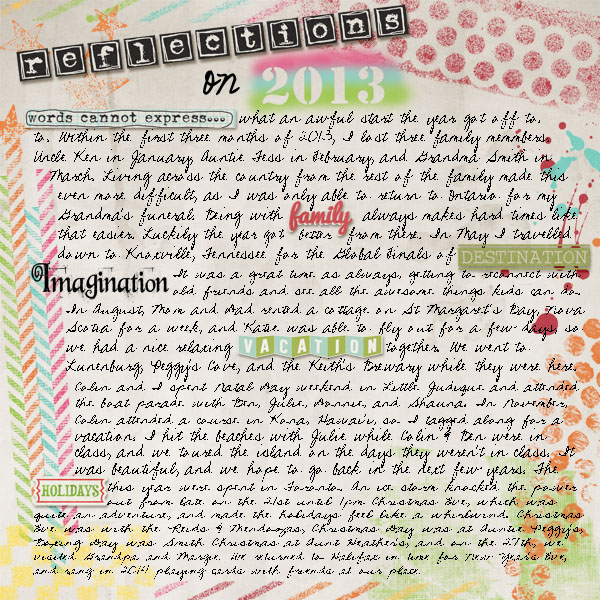 reflections
on 2013
words cannot express... what an awful start the year got off to.
to. Within the first three months of 2013, I lost three family members.
Uncle Ken in January, Auntie Tess in February, and Grandma Smith in
March. Living across the country from the rest of the family made this
even more difficult, as I was only able to return to Ontario for my
Grandma's funeral. Being with family always makes hard times like
that easier. Luckily the year got better from there. In May I travelled
down to Knoxville, Tennessee for the Global Finals of DESTINATION
Imagination It was a great time as always, getting to reconnect with
old friends and see all the awesome things kids can do.
In August, Mom and Dad rented a cottage on St Margaret's Bay Nova
Scotia for a week, and Katie was able to fly out for a few days, so
we had a nice relaxing VACATION together. We went to
Lunenburg, Peggy's Cove, and the Keith's Brewary while they were here.
Colin and I spent Natal Day weekend in Little Judique and attended
the boat parade with Ben, Julie, Donnie, and Shauna. In November,
Colin attended a course in Kona, Hawai'i, so I tagged along for a
vacation. I hit the beaches with Julie while Colin & Ben were in
class, and we toured the island on the days they weren't in class. It
was beautiful, and we hope to go back in the next few years. The
HOLIDAYS this year were spent in Toronto. An ice storm knocked the power
out from late on the 21st until 1pm Christmas Eve, which was
quite an adventure, and made the holidays feel like a whirlwind. Christmas
Eve was with the Reids & Mendozas, Christmas Day was at Auntie Peggy's,
Boxing Day was Smith Christmas at Aunt Heather's, and on the 27th, we
visited Grandpa and Margie. We returned to Halifax in time for New Years Eve,
and rang in 2014 playing cards with friends at our place.